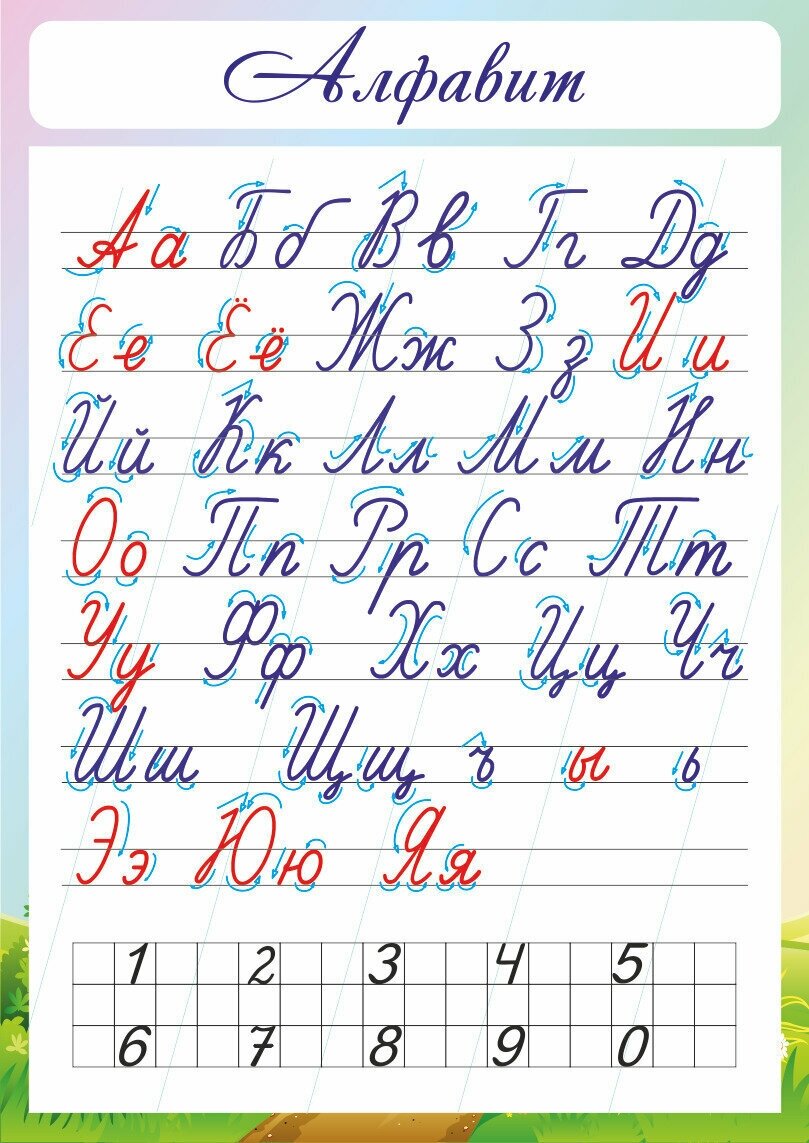 Алфавит
Аа Бб Вв Гг Дд
Ее Ёё Жж Зз Ии
Йй Кк Лл Мм Нн
Оо Пп Рр Сс Тт
Уу Фф Хх Цц Чч
Шш Щщ ъ ы ь
Ээ Юю Яя
1 2 3 4 5
6 7 8 9 0